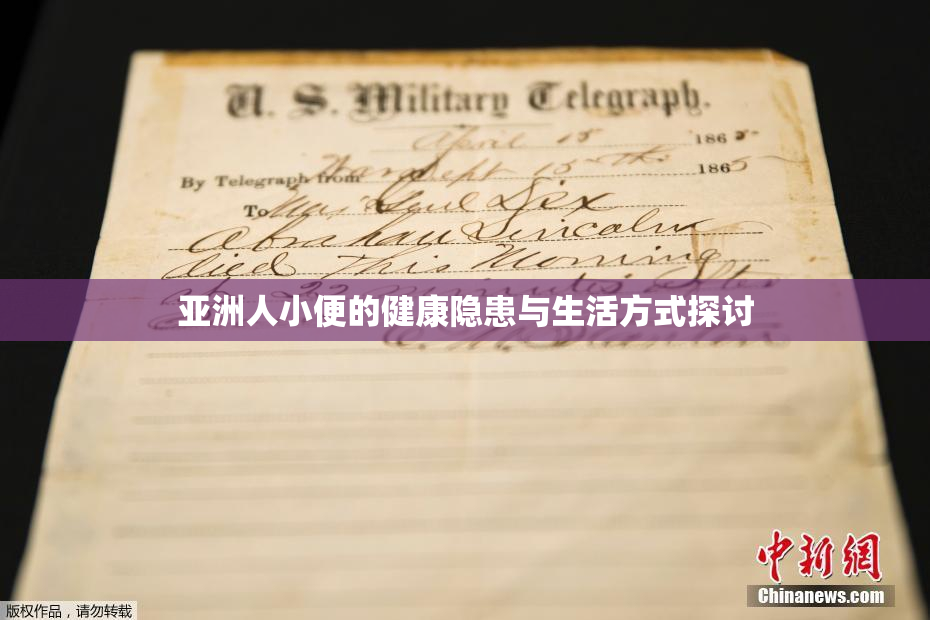 U. S. Military Telegraph.
April 15 1865
By Telegraph from War Dept 15th 1865
To Maj Genl Dix
Abraham Lincoln
died This Morning
at 22 minutes after
亚洲人小便的健康隐患与生活方式探讨
E. M. Stanton
中新网
Chinanews.com
版权作品，请勿转载